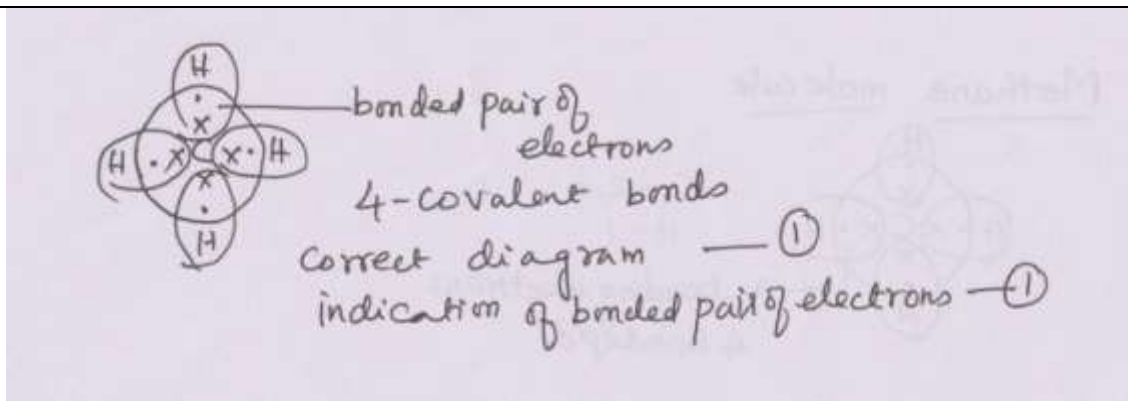 H
bonded pair of
electrons
H . x C x . H
x
.
H
4-covalent bonds
correct diagram — ①
indication of bonded pair of electrons — ①
Methane molecule